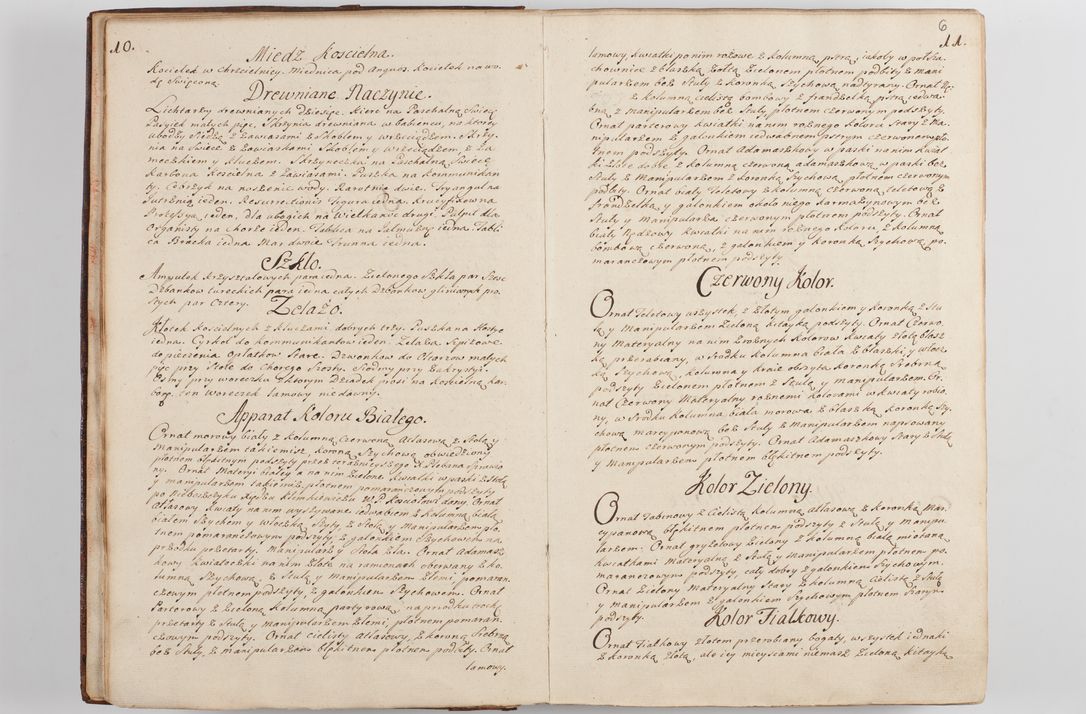 10.
Miedź Koscielna.
Kociełek w Chrzcielnicy. Miednica pod Angus. Kociełek na wo-
dę Swięconą.
Drewniane Naczynie.
Lichtarzy drewnianych dziesięc. Kiere na Paschalną Swiecę
Par pięć małych pięć. Skrzynia drewniana w babiencu, na ktorey
ubodzy Siedzą z Zawiasami z Skoblem y wrzeciądzem. Skrzy-
nia na Swiece z Zawiaskami Skoblem y Wrzeciądzem, z Za-
meczkiem y Kluczem. Skrzyneczka na Paschalną Swiecę
Karbona Koscielna z Zawiasami. Puszka na Kommunikan-
ty. Cebrzyk na noszenie wody. Karotnie dwie. Tryangul na
Jutrznią ieden. Resurrectionis Figura iedna. Krucyfix owna
Processyą ieden, dla ubogich na Wielkanoc drugi. Pulpit dla
Organisty na Chorze ieden. Tablica na Jałmużny iedna. Tabli-
ca Bracka iedna Mar dwoie Trunna iedna.
Szkło.
Ampułek Krzyształowych para iedna. Zielonego Szkła par Szesc
Dzbankow tureckich para iedna całych Dzbankow glinianych pro-
stych par Cztery.
Zelazo.
Klotek Koscielnych z kluczami dobrych trzy. Puszka na Hostye
iedna. Cyrkel do kommunikantow ieden. Zelaza Spizowe
do pieczenia Opłatkow Stare. Dzwonkow do Ołtarzow małych
pięc przy Stole do Chorego Szosty. Siodmy przy Zakrystyi.
Osmy przy woreczku Ktorym Dziadek prosi na Koscielną Kar-
bonę, ten Woreczek lamowy niedawny.
Apparat Koloru Białego.
Ornat morowy biały z Kolumną Czerwoną Atłasową z Stołą y
Manipularzem takiemisz, Koroną Szychową obwiedziony
płotnem błękitnym podszyty przez teraznieyszego X. Plebana Sprawio-
ny. Ornat Materyi białey a na nim Zielone Kwiatki w paski z Stułą
y manipularzem takiemisz płotnem pomaranczowym podszyty
po Nieboszczyku Xiędzu Klimkiewiczu W.P. Kosciołowi dany. Ornat
Atłasowy Kwiaty na nim wyszywane iedwabiem z Kolumną białą
białem Szychem y włoczką Szyty, z Stołą y Manipularzem pło-
tnem pomaranczowym podszyty, z galonkiem Szychowem na
przodku przetarty. Manipularz y Stoła zła. Ornat Adamasz-
kowy Kwiateczki na nim złote na ramionach oberwany z ko-
lumną Szychową, z Stułą y Manipularzem złemi pomaran-
czowym płotnem podszyty, z galonkiem Szychowem. Ornat
Parterowy z Zieloną Kolumną partyrową na przodku trochę
przetarty z Stułą y Manipularzem złemi, płotnem pomaran-
czowym podszyty. Ornat cielisty atłasowy, z koroną Srebrną
bez Stuły, z manipularzem błękitnem płotnem podszyty. Ornat
lamowy.
6
11.
lamowy, kwiatki po nim rożowe z kolumną pstrą iakoby w potsza-
chownicę z blaszką Zołtą Zielonem płotnem podbity z Mani-
pularzem bez Stuły z koronką Szychową nadtyrany. Ornat By-
z kolumną cielistą bombowy z frandzelką pstrą iedwa-
bną z manipularzem bez Stuły płotnem czerwonym podszyty.
Ornat parterowy kwiatki na nim rożnego koloru Stary z Ma-
nipularzem z galonkiem iedwabnem pstrym czerwonem pło-
tnem podszyty. Ornat Adamaszkowy w paski na nim kwiat-
ki złote dobre, z kolumną czerwoną adamaszkową w paski bez
Stuły z Manipularzem z koronką Szychową, płotnem czerwonym
podszyty. Ornat biały Teletowy z kolumną czerwoną teletową z
Frandzelką, y galonkiem około niego karmazynowym bez
Stuły y Manipularza czerwonym płotnem podszyty. Ornat
biały Rędzowy kwiatki na nim rożnego Koloru, z kolumną
bombową czerwoną, z galonkiem y koronką Szychową po-
maranczowym płotnem podszyty.
Czerwony Kolor.
Ornat Teletowy wszystek, z złotym galonkiem y koronką, z Stu-
łą y Manipularzem Zieloną kitayką podszyty. Ornat Czerwo-
ny Materyalny na nim z rożnych Kolorow kwiaty złotą blasz-
ką przerabiany, w Srodku kolumna biała z blaszki y włocz-
ką Szychową, kolumna y kraie obszyte koronką Srebrną
podszyty Zielonem płotnem z Stułą y Manipularzem. Or-
nat Czerwony Materyalny rożnemi kolorami w kwiaty robio-
ny, w Srodku kolumna biała morowa z blaszką koronką Szy-
chową marcypanową bez Stuły z Manipularzem naprsowany
płotnem czerwonym podszyty. Ornat Adamaszkowy Stary z Stułą
y Manipularzem płotnem błękitnem podszyty.
Kolor Zielony.
Ornat Tabinowy z Cielistą kolumną atłasową z koronką Mar-
cypanową błękitnem płotnem podszyty z Stułą y Manipu-
larzem. Ornat gryzetowy Zielony z kolumną białą mieniną
kwiatkami Materyalną z Stułą y Manipularzem płotnem po-
maranczowym podszyty, cały dobry z galonkiem Szychowym.
Ornat Zielony Materyalny Stary z kolumną Cielistą z Stułą
y Manipularzem z galonkiem Szychowym płotnem Czarnym
podszyty.
Kolor Fialkowy.
Ornat Fialkowy złotem przerobiany bogaty, wszystek iednaki
z koronką złotą, ale iey mieyscami niemasz Zieloną kitayką